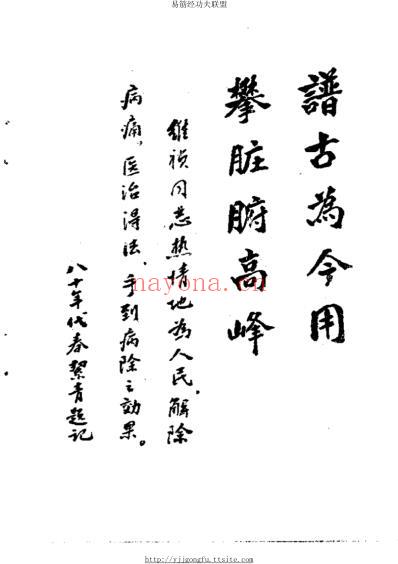 易筋经功夫联盟
譜古為今用
攀脏腑高峰
維祯同志热情地為人民，解除
病痛，医治得法，手到病除之効果。
八十年代春絜青题记
nayona.cn
http://yijgongfu.ttsite.com